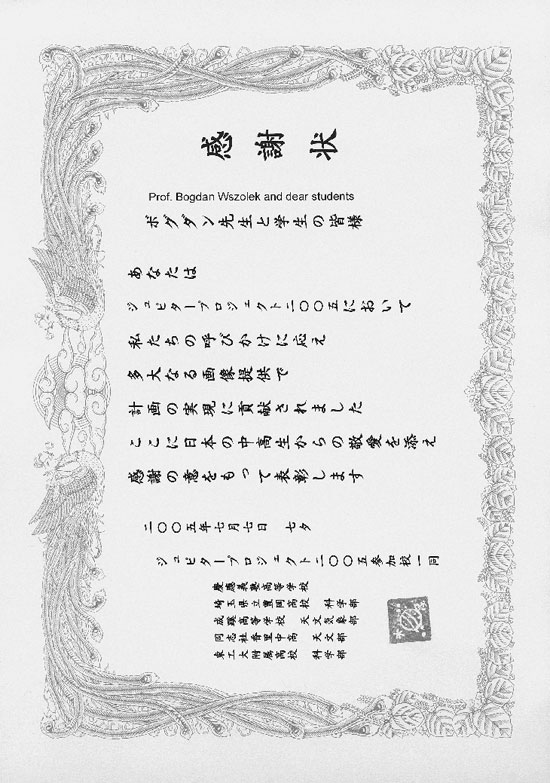 感謝状
Prof. Bogdan Wszolek and dear students
ボグダン先生と学生の皆様
あなたは
ジュピタープロジェクト二〇〇五において
私たちの呼びかけに応え
多大なる画像提供で
計画の実現に貢献されました
ここに日本の中高生からの敬愛を添え
感謝の意をもって表彰します
二〇〇五年七月七日 七夕
ジュピタープロジェクト二〇〇五参加校一同
慶應義塾高等学校
埼玉県立豊岡高校 科学部
成蹊高等学校 天文気象部
同志社香里中高 天文部
東工大附属高校 科学部